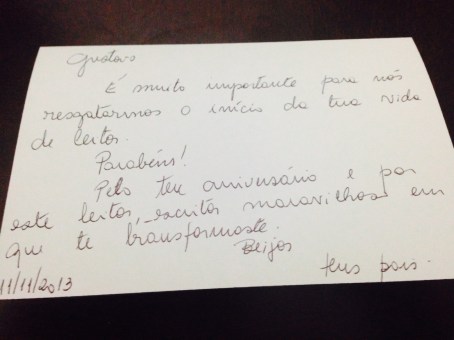 Gustavo
É muito importante para nós
resgatarmos o início da tua vida
de leitor.
Parabéns!
Pelo teu aniversário e por
este leitor, escritor maravilhoso em
que te transformaste.
Beijos
teus pais.
11/11/2013